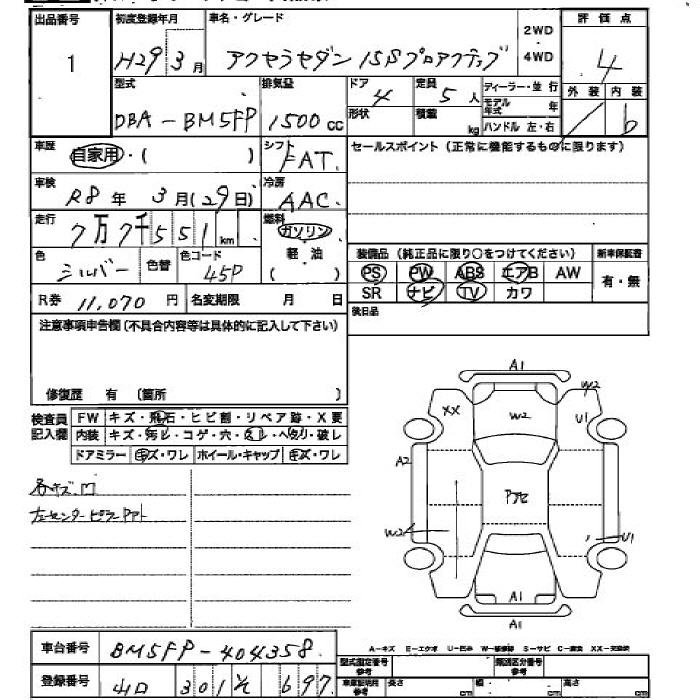 出品番号 初度登録年月 車名・グレード 2WD・4WD 評価点
1 H29 3月 アクセラセダン 15Sプロアクティブ 4
型式 排気量 ドア 定員 ディーラー・並行 外装 内装
DBA-BM5FP 1500cc 4 5人 モデル年式 年 b
形状 積載 kg ハンドル 左・右
車歴 自家用・( ) シフト FAT. セールスポイント (正常に機能するものに限ります)
車検 R8年 3月(29日) 冷房 AAC
走行 7万7千551km 燃料 ガソリン 軽・油 ( )
色 シルバー 色替 色コード 45P
装備品 (純正品に限り○をつけてください) 新車保証書
PS PW ABS エアB AW 有・無
SR ナビ TV カワ
R券 11,070円 名変期限 月 日 後日品
注意事項申告欄(不具合内容等は具体的に記入して下さい)
修復歴 有 (箇所 )
検査員記入欄 FW キズ・飛石・ヒビ割・リペア跡・X要
内装 キズ・汚レ・コゲ・穴・スレ・ヘタリ・破レ
ドアミラー キズ・ワレ ホイール・キャップ キズ・ワレ
各キズ凹
左センターピラーPアト
A1
W2
XX W2 U1
A2 Pアセ
W2 U1
A1
A1
車台番号 BM5FP-404358
登録番号 山口 301 697
A-キズ E-エクボ U-凹み W-補修跡 S-サビ C-腐食 XX-交換済
型式指定番号 参考 類別区分番号 参考
車庫証明用 参考 長さ cm 幅 cm 高さ cm